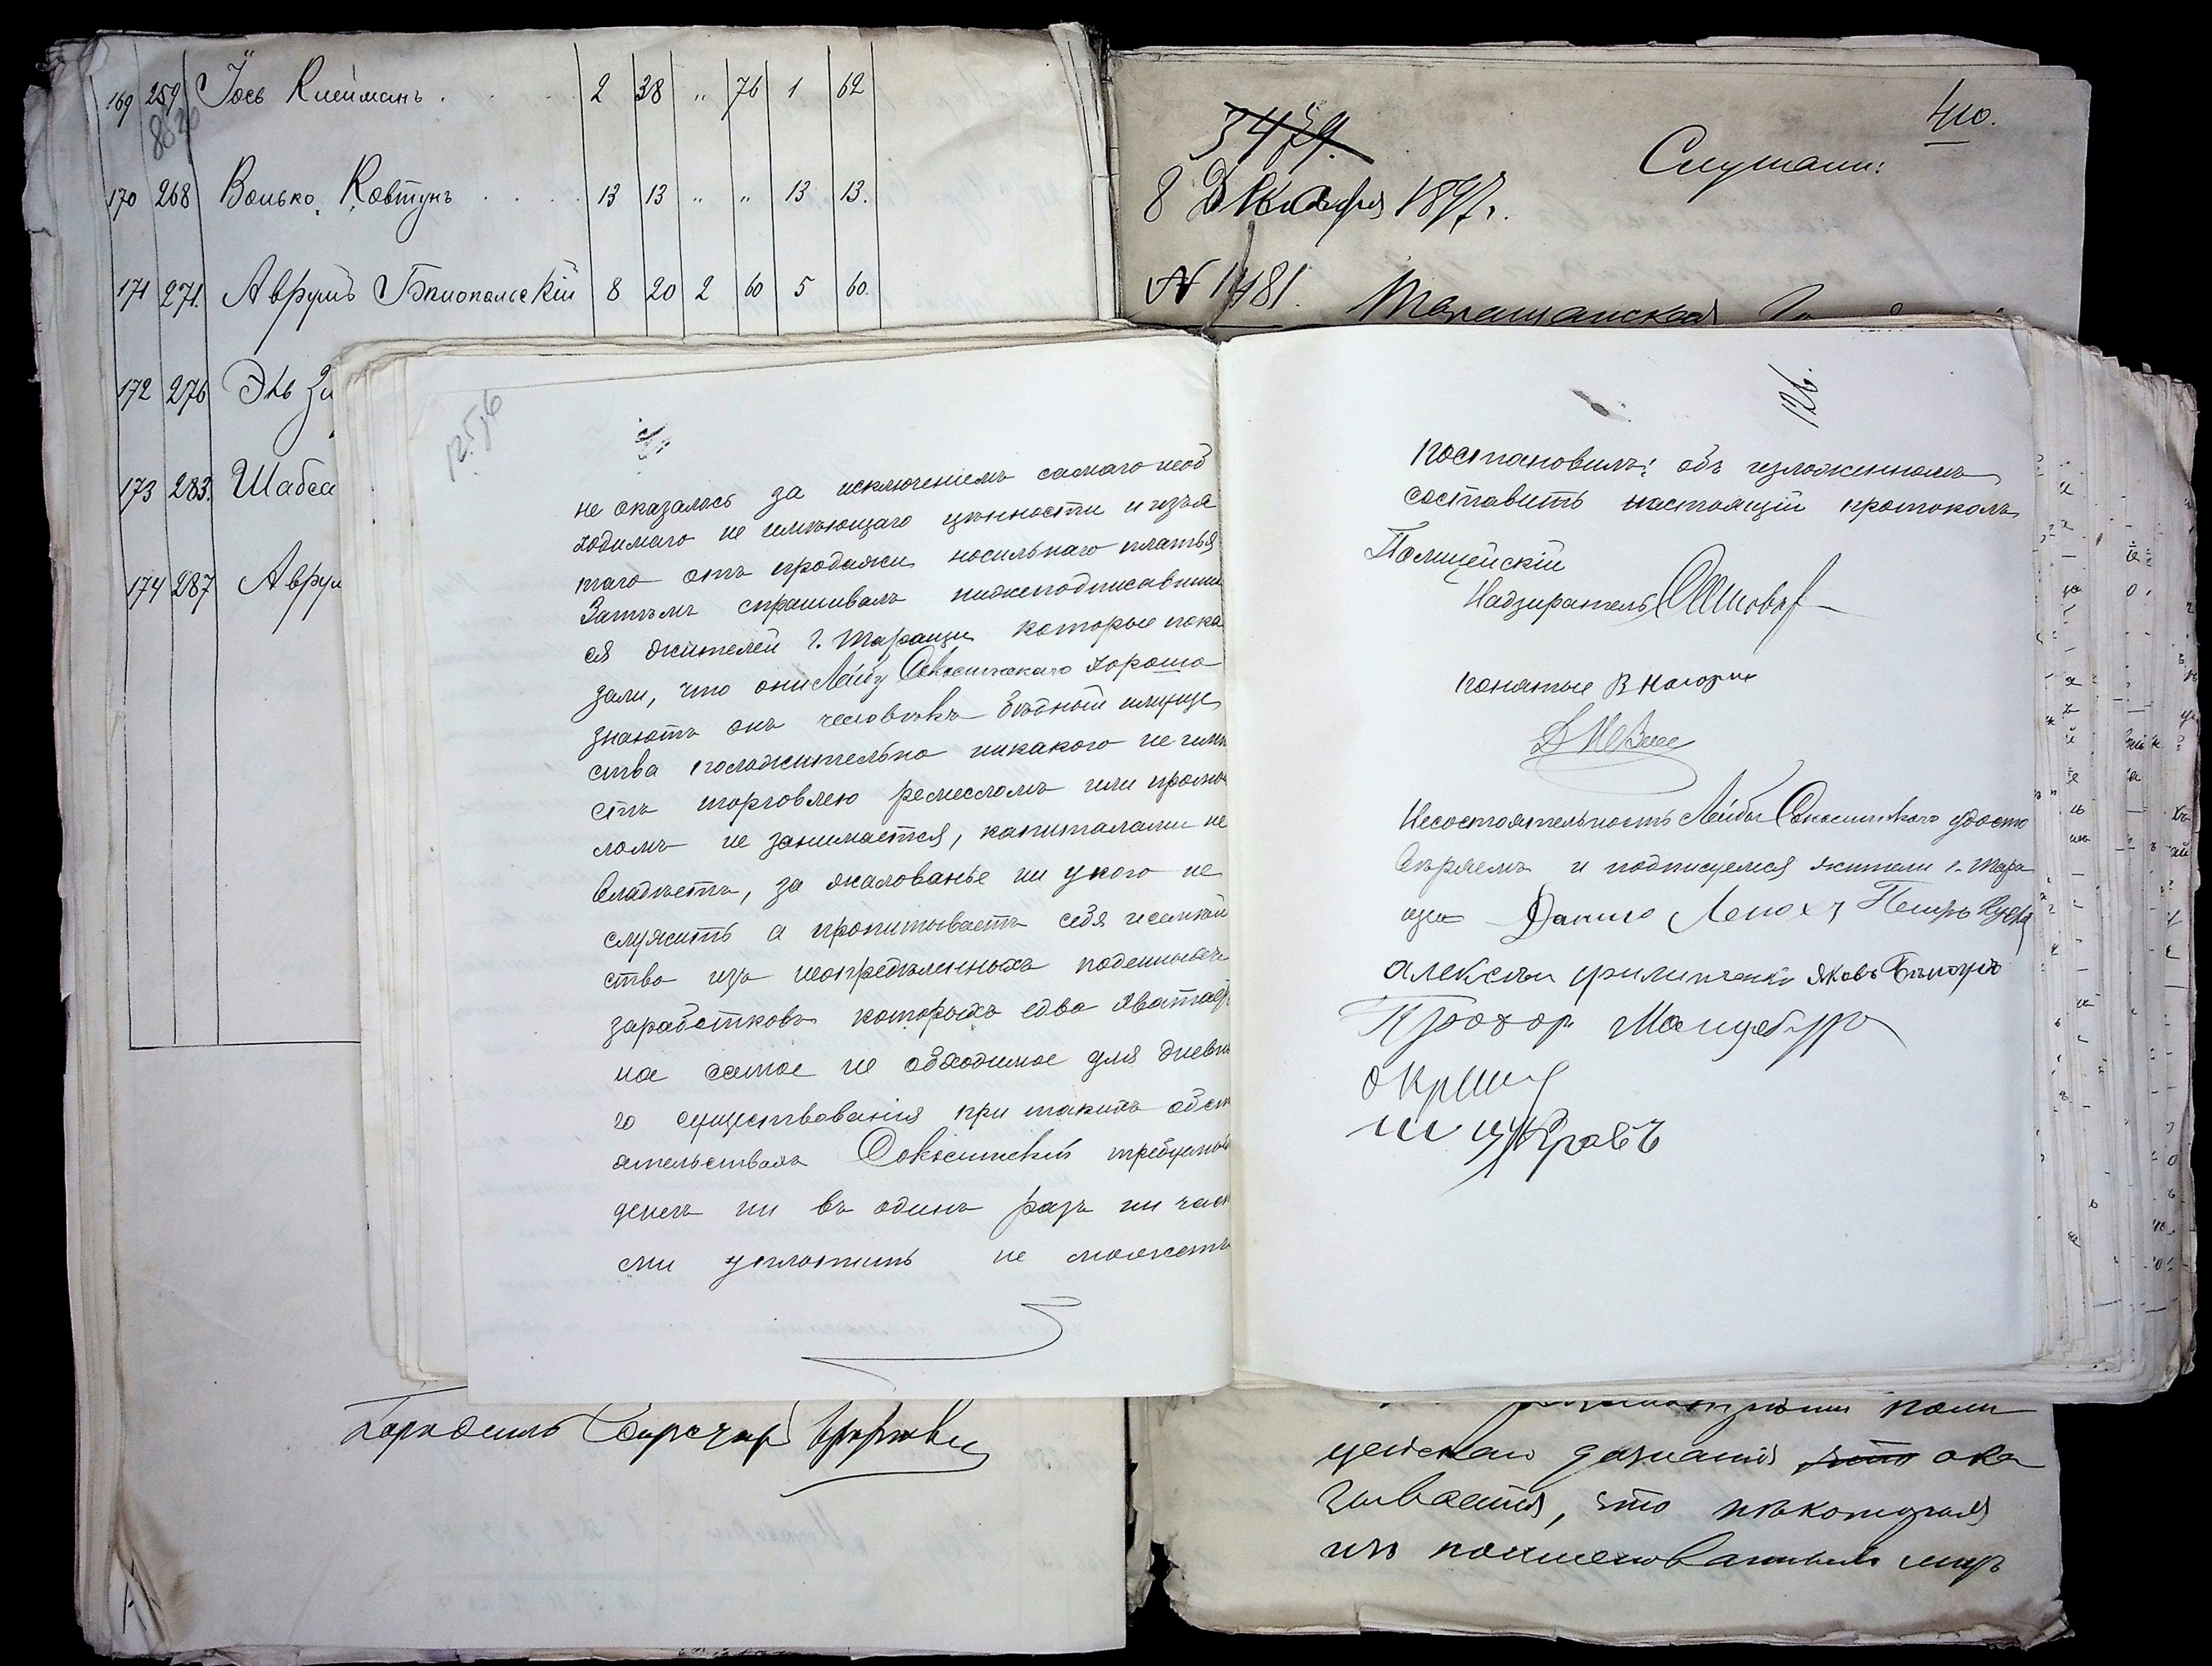 169 259 Іось Клейманъ . 2 38 " 76 1 62
170 268 Волько Ковтунъ . . . . 13 13 " " 13 13.
171 271. Аврумъ Бялопольскій 8 20 2 60 5 60.
172 276 Эль
173 283. Шабса
174 287 Аврум
410.
3479.
Слушали:
8 Декабря 1897 г.
№ 1481.
Таращанская
не оказалось за исключеніемъ самаго необ
ходимаго не имѣющаго цѣнности и изъя
таго отъ продажи носильнаго платья
Затѣмъ спрашивалъ нижеподписавших
ся жителей г. Таращи которые пока
зали, что они Лейбу Соколинскаго хорошо
знаютъ онъ человѣкъ бѣдный имуще
ства положительно никакого не имѣ
етъ торговлею ремесломъ или промы
сломъ не занимается, капиталами не
владѣетъ, за жалованье ни у кого не
служитъ а пропитываетъ себя и семей
ство изъ неопредѣленныхъ поденныхъ
заработковъ которыхъ едва хватаетъ
на самое не обходимое для дневна
го существованія при такихъ обсто
ятельствахъ Соколинскій требуемых
денегъ ни въ одинъ разъ ни част
ями уплатить не можетъ
126.
постановилъ: объ изложенномъ
составить настоящій протоколъ
Полицейскій
Надзиратель
понятые
Несостоятельность Лейбы Соколинскаго удосто
вѣряемъ и подписуемся жители г. Тара
щи Данило Петръ
Алексѣй Филипченко Яковъ
Прохор
Кравъ
цейскаго дознанія что ока
зывается, что нѣкоторыя
изъ поименованныхъ лицъ